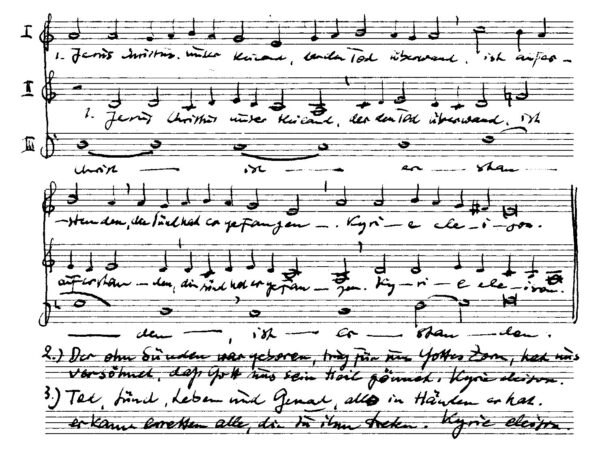 I
1. Jesus Christus unser Heiland, der den Tod überwand, ist aufer-
II
1. Jesus Christus unser Heiland, der den Tod überwand, ist
III
Christ — ist — er — stan
-standen, die Sünd hat er gefangen —. Kyri — e ele — i — son.
auferstan — den, die Sünd hat er gefan — gen. Ky — ri — e eleison.
— den —, ist — er — stan — den.
2.) Der ohn Sünden war geboren, trug für uns Gottes Zorn, hat uns
versöhnet, daß Gott uns sein Huld gönnet. Kyrie eleison.
3.) Tod, Sünd, Leben und Genad, alls in Händen er hat.
er kann erretten alle, die zu ihm treten. Kyrie eleison.